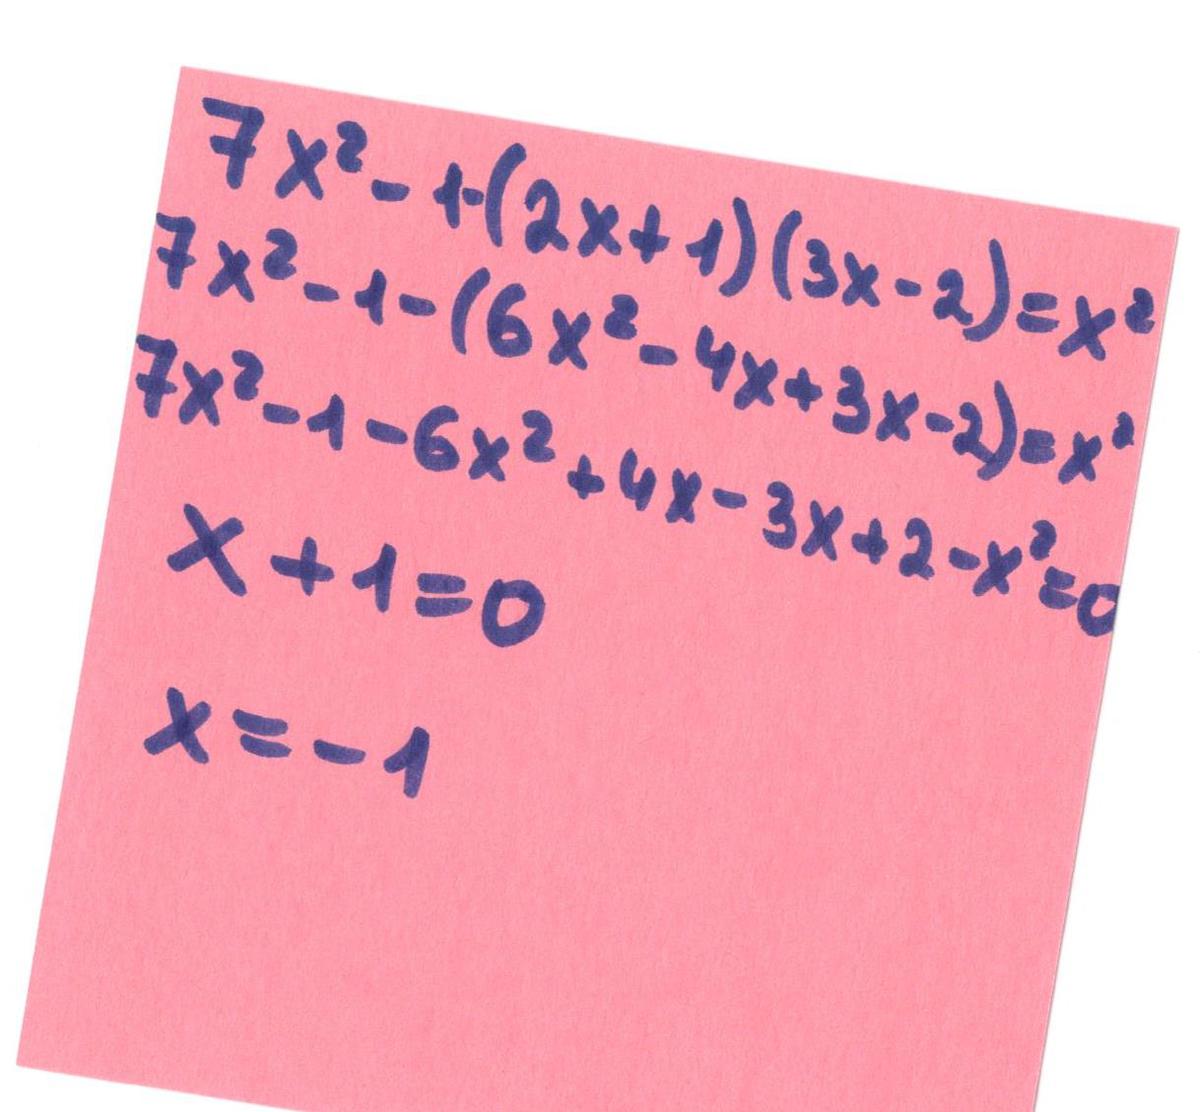 7x² - 1-(2x+1)(3x-2)=x²
7x²-1-(6x²-4x+3x-2)=x²
7x²-1-6x²+4x-3x+2-x²=0
x+1=0
x=-1